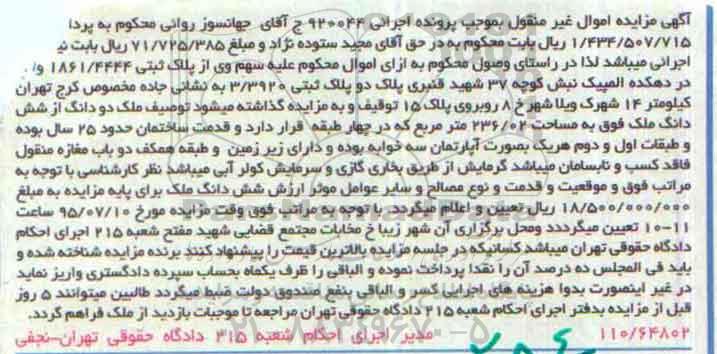 آگهی مزایده اموال غیر منقول بموجب پرونده اجرائی ۹۲۰۰۴۴ ج آقای جهانسوز روانی محکوم به پردا
۱/۴۳۴/۵۰۷/۷۱۵ ریال بابت محکوم به در حق آقای مجید ستوده نژاد و مبلغ ۷۱/۷۲۵/۳۸۵ ریال بابت نی
اجرائی میباشد لذا در راستای وصول محکوم به ازای اموال محکوم علیه سهم وی از پلاک ثبتی ۱۸۶۱/۴۴۴۴ وا
در دهکده المپیک نبش کوچه ۳۷ شهید قنبری پلاک دو پلاک ثبتی ۳/۳۹۲۰ به نشانی جاده مخصوص کرج تهران
کیلومتر ۱۴ شهرک ویلا شهر خ ۸ روبروی پلاک ۱۵ توقیف و به مزایده گذاشته میشود توصیف ملک دو دانگ از شش
دانگ ملک فوق به مساحت ۲۳۶/۰۲ متر مربع که در چهار طبقه قرار دارد و قدمت ساختمان حدود ۲۵ سال بوده
و طبقات اول و دوم هریک بصورت آپارتمان سه خوابه بوده و دارای زیر زمین و طبقه همکف دو باب مغازه منقول
فاقد کسب و نابسامان میباشد گرمایش از طریق بخاری گازی و سرمایش کولر آبی میباشد نظر کارشناسی با توجه به
مراتب فوق و موقعیت و قدمت و نوع مصالح و سایر عوامل موثر ارزش شش دانگ ملک برای پایه مزایده به مبلغ
۱۸/۵۰۰/۰۰۰/۰۰۰ ریال تعیین و اعلام میگردد با توجه به مراتب فوق وقت مزایده مورخ ۹۵/۰۷/۱۰ ساعت
۱۰-۱۱ تعیین میگرددد ومحل برگزاری آن شهر زیبا خ مخابات مجتمع قضایی شهید مفتح شعبه ۲۱۵ اجرای احکام
دادگاه حقوقی تهران میباشد کسانیکه در جلسه مزایده بالاترین قیمت را پیشنهاد کنند برنده مزایده شناخته شده و
باید فی المجلس ده درصد آن را نقدا پرداخت نموده و الباقی را ظرف یکماه بحساب سپرده دادگستری واریز نماید
در غیر اینصورت بدوا هزینه های اجرایی کسر و الباقی بنفع صندوق دولت ضبط میگردد طالبین میتوانند ۵ روز
قبل از مزایده بدفتر اجرای احکام شعبه ۲۱۵ دادگاه حقوقی تهران مراجعه تا موجبات بازدید از ملک فراهم گردد.
۱۱۰/۶۴۸۰۲ مدیر اجرای احکام شعبه ۲۱۵ دادگاه حقوقی تهران-نجفی